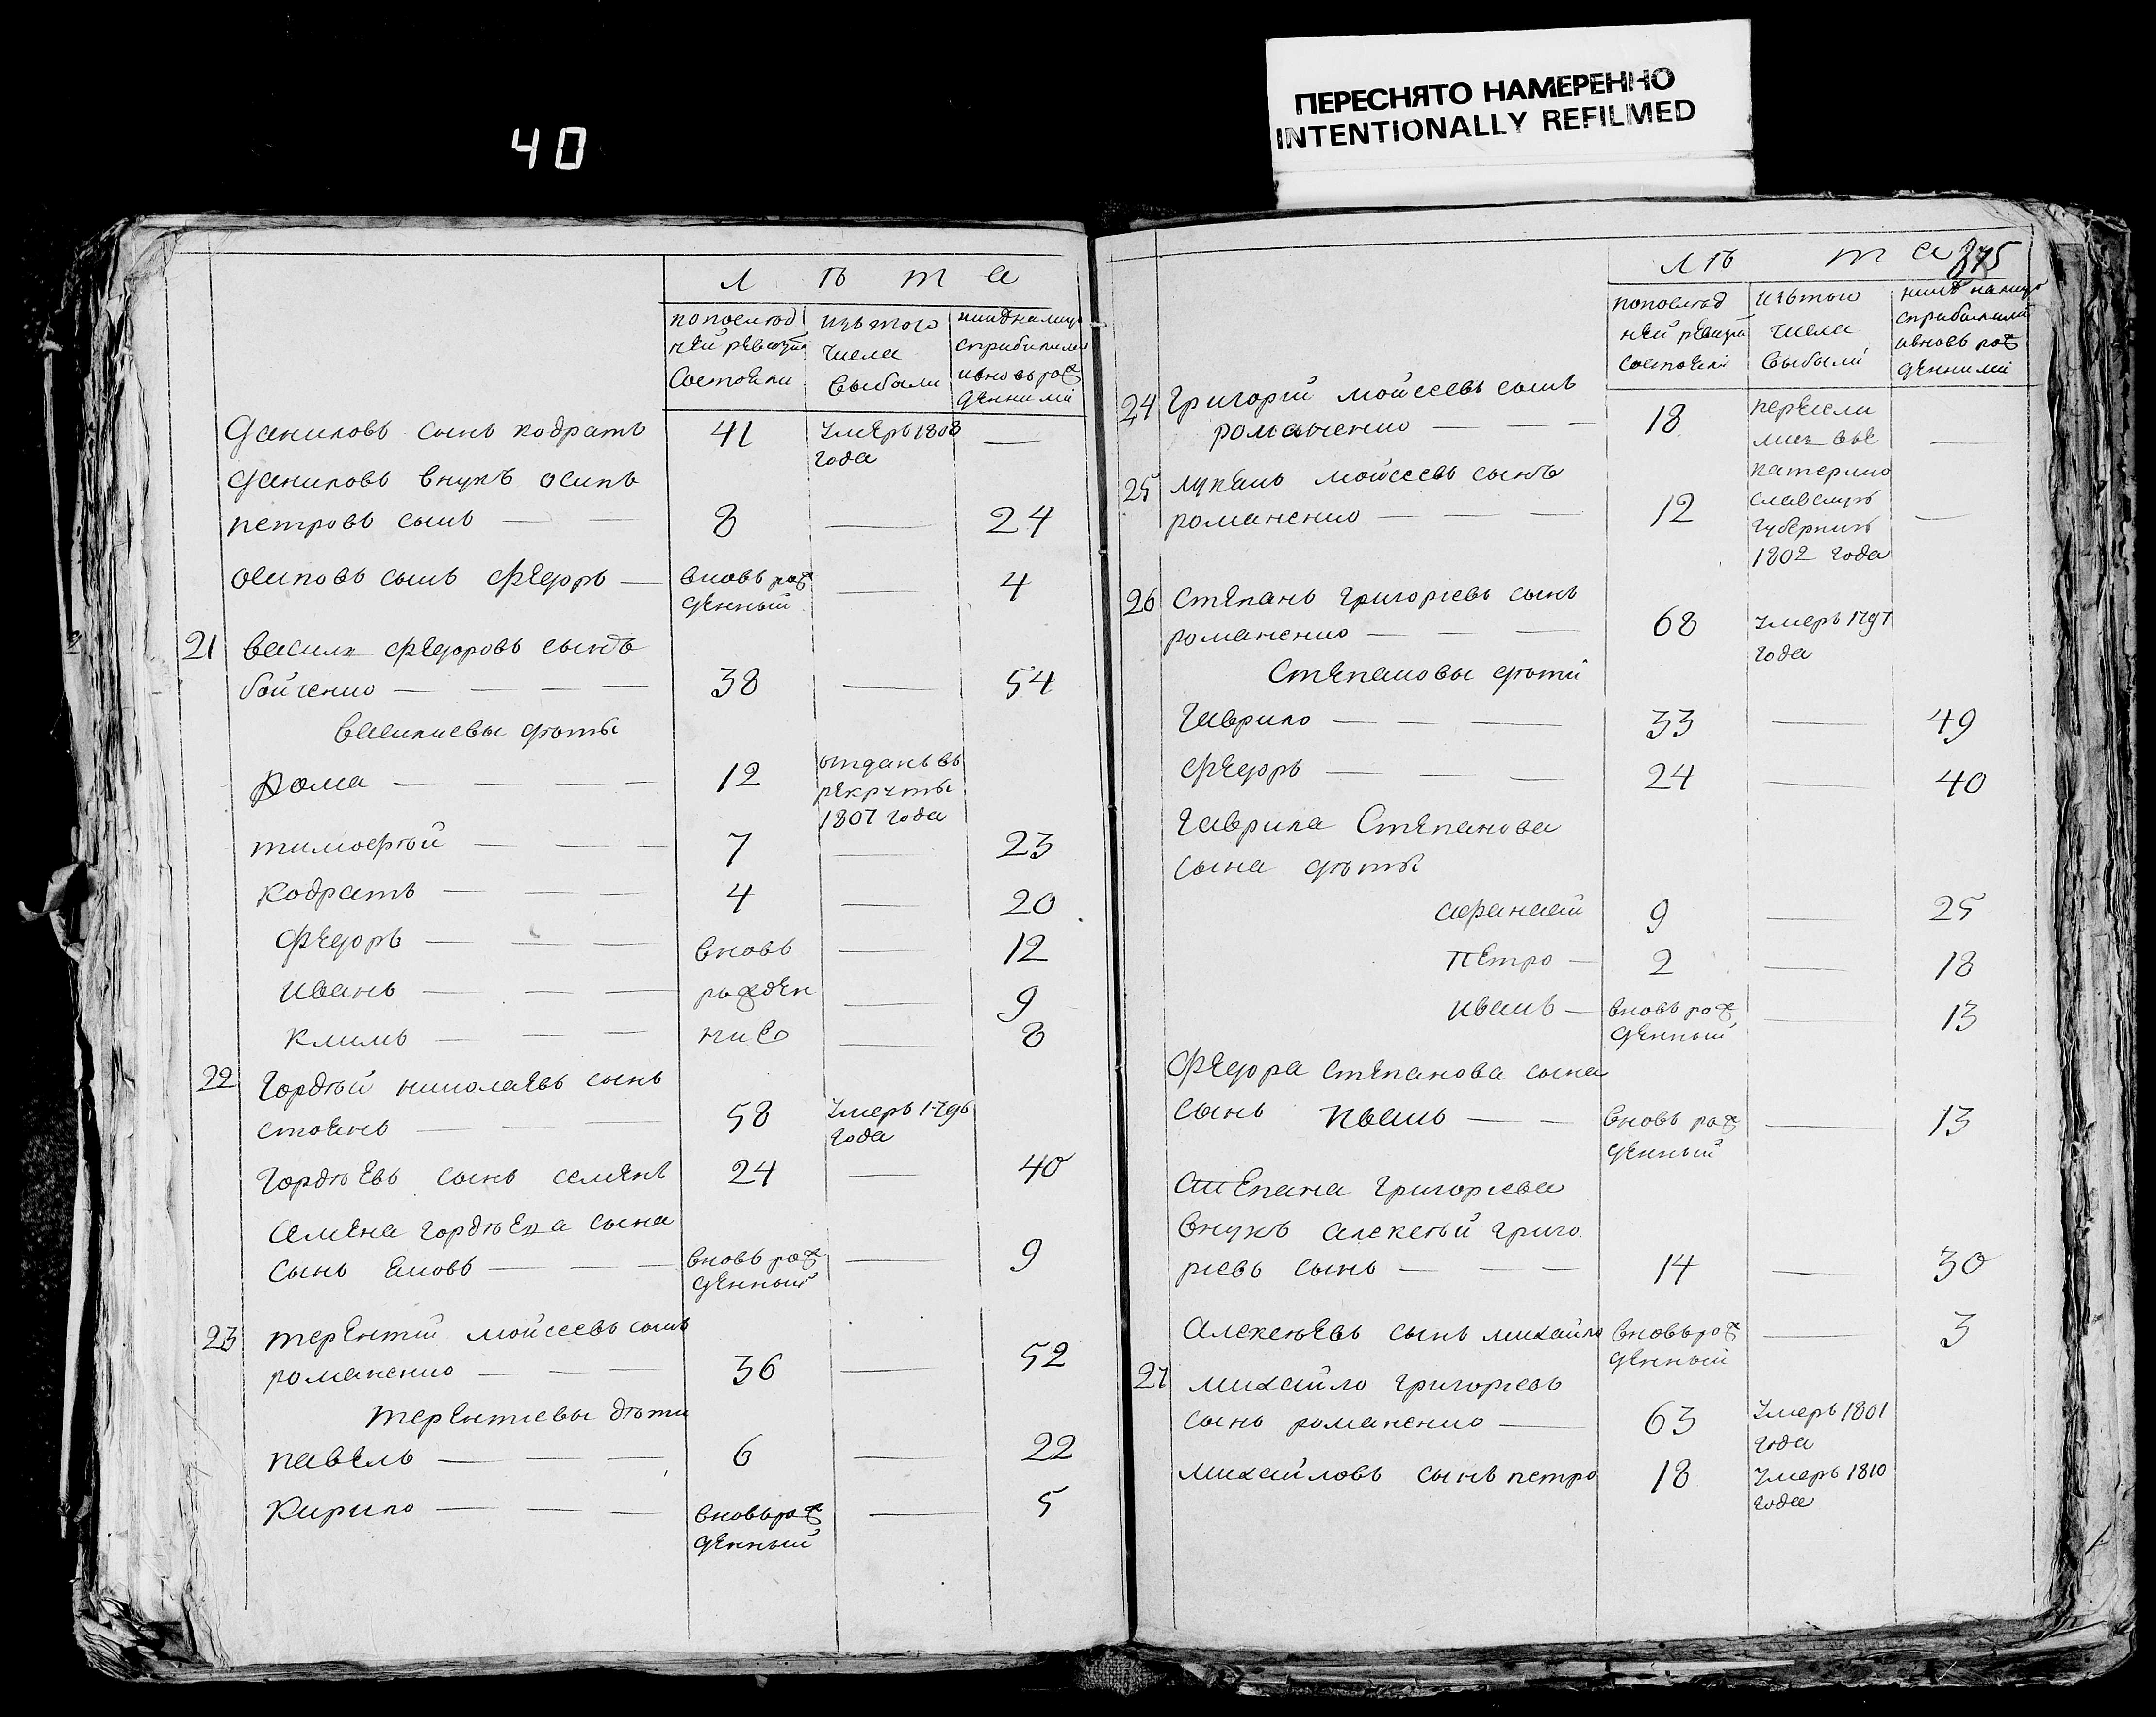 40
ПЕРЕСНЯТО НАМЕРЕННО
INTENTIONALLY REFILMED
Л Ѣ т а
попослѣд изътого нынѣналицо
ней ревизіи числа сприбылыми
Состояли выбыли ивновьрож
денными
Даниловъ сынъ кодратъ 41 Умеръ 1808 —
года
Даниловъ внукъ осипъ
петровъ сынъ — — 8 — 24
Осиповъ сынъ Федоръ — вновь рож — 4
денный
21 василй Федоровъ сынъ
бойченко — — — — 38 — 54
василиевы дѣти
Фома — — — 12 отданъ въ
рекруты
1807 года
тимофѣй — — — 7 — 23
Кодратъ — — — 4 — 20
Федоръ — — вновь — 12
иванъ — — — рожден — 9
Климъ — — — ные — 8
22 Гордѣй николаевъ сынъ
стоянъ — — — 58 Умеръ 1796
года
Гордѣевъ сынъ семенъ 24 — 40
Семена гордѣева сына
сынъ яковъ — — — вновь рож — 9
денный
23 терентий мойсеевъ сынъ
романенко — — 36 — 52
терентиевы дѣти
павелъ — — — 6 — 22
Кирило — — — вновьрож — 5
денный
875
Л Ѣ т а
попослѣд изътого нынѣ налицо
ней ревизіи числа сприбылыми
состояли выбыли ивновь рож
денными
24 Григорий мойсеевъ сынъ
романенко — — — 18 перечисли —
лися въе
25 лукянъ мойсеевъ сынъ катерино
романенко — — — 12 славскую —
губернию
1802 года
26 Степанъ григориевъ сынъ
романенко — — — 68 Умеръ 1797
года
Степановы дѣти
Гаврило — — — 33 — 49
Федоръ — — — 24 — 40
Гаврила Степанова
сына дѣти
афанасий 9 — 25
Петро — 2 — 18
иванъ — вновь рож — 13
денный
Федора степанова сына
сынъ иванъ — — вновь рож — 13
денный
Степана григориева
внукъ алексѣй григо
риевъ сынъ — — — 14 — 30
Алексѣевъ сынъ михайло вновьрож — 3
денный
27 михайло григориевъ
сынъ романенко — 63 Умеръ 1801
года
михайловъ сынъ петро 18 Умеръ 1810
года